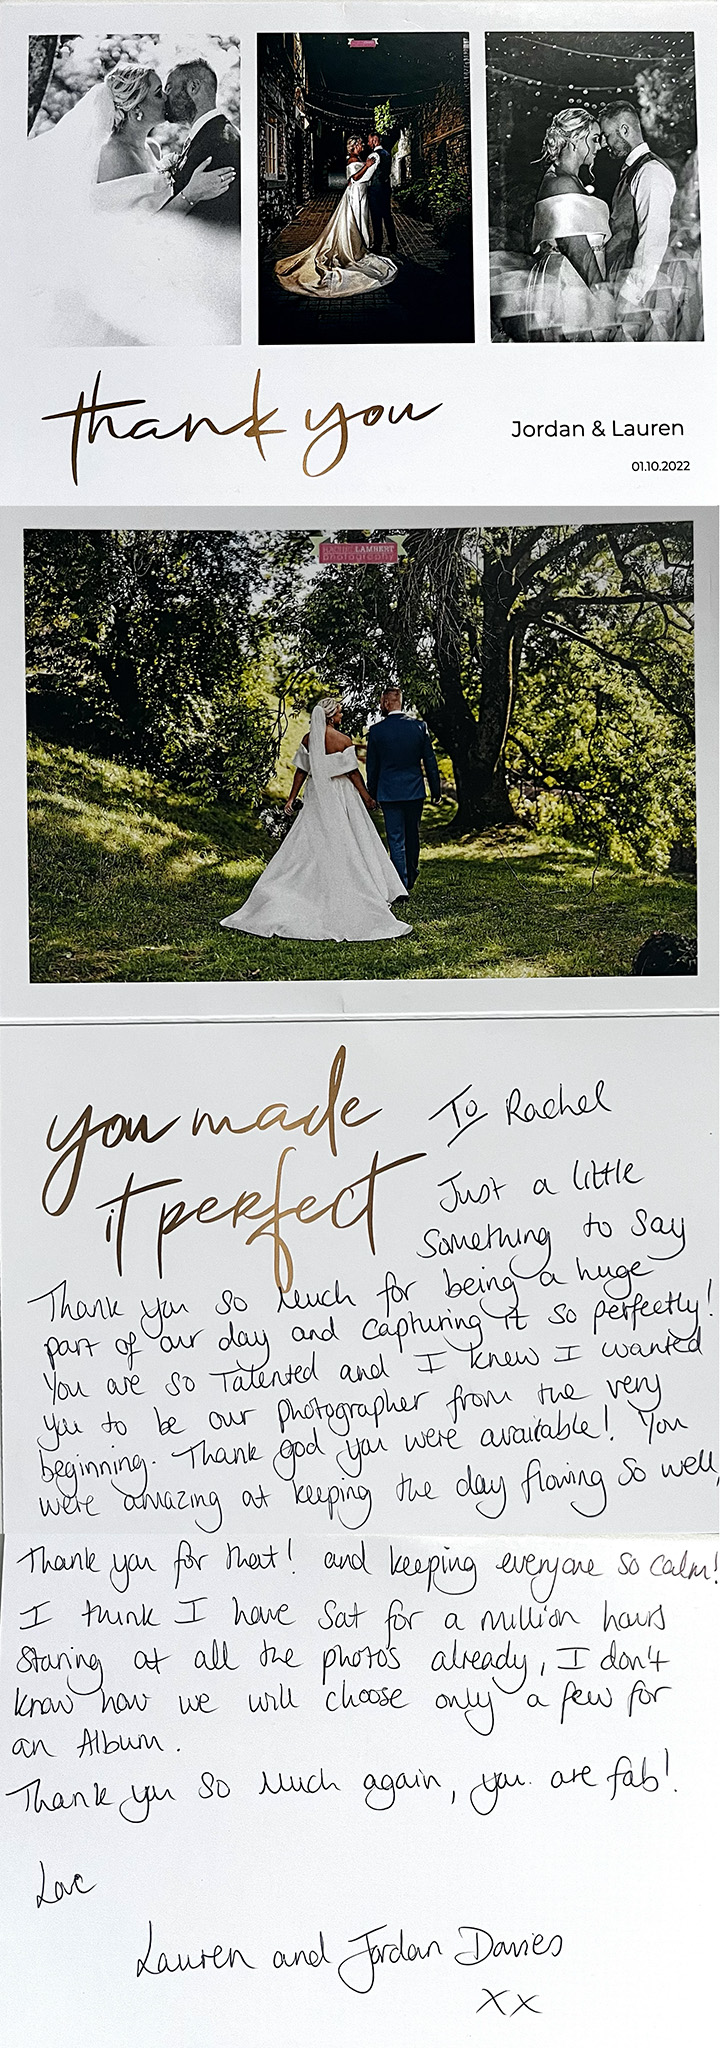 thank you
Jordan & Lauren
01.10.2022
RACHEL LAMBERT
photography
you made
it perfect
To Rachel
Just a little
something to say
Thank you so much for being a huge
part of our day and capturing it so perfectly!
You are so talented and I knew I wanted
you to be our photographer from the very
beginning. Thank god you were available! You
were amazing at keeping the day flowing so well,
Thank you for that! and keeping everyone so calm!
I think I have sat for a million hours
staring at all the photo's already, I don't
know how we will choose only a few for
an Album.
Thank you so much again, you are fab!
Love
Lauren and Jordan Davies
xx